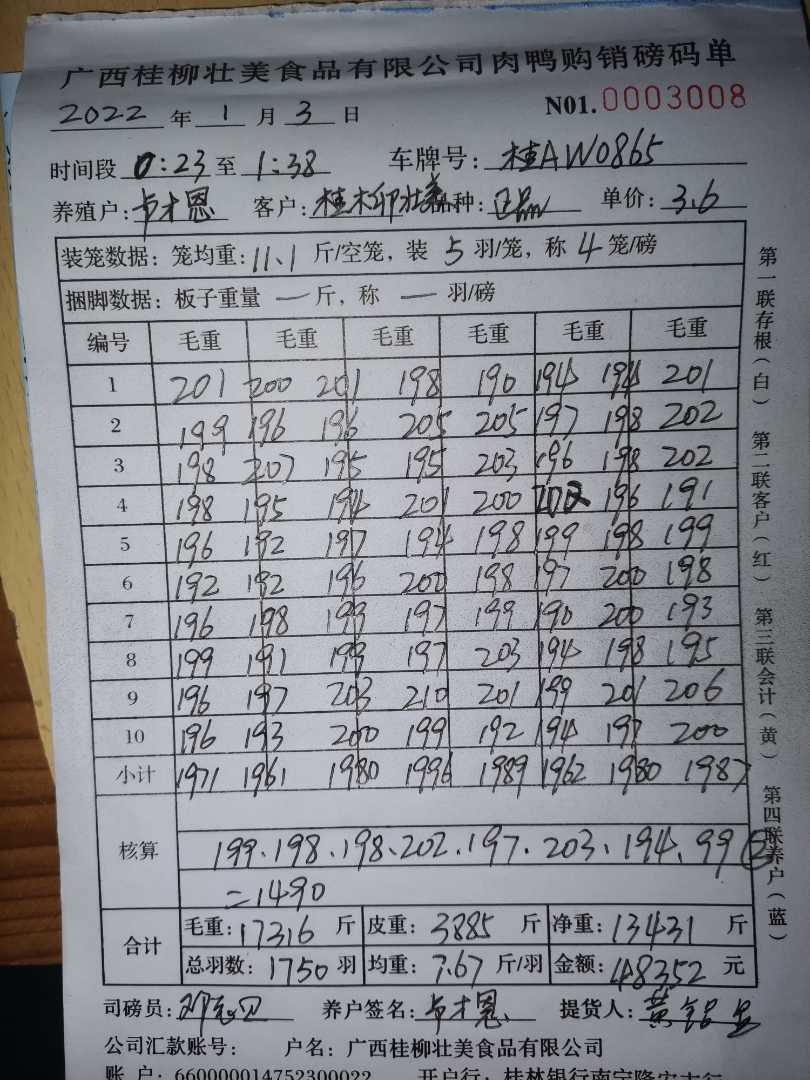 广西桂柳壮美食品有限公司肉鸭购销磅码单
2022 年 1 月 3 日 N01. 0003008
时间段 0:23 至 1:38 车牌号: 桂AW0865
养殖户: 卡才恩 客户: 桂柳壮美 品种: 单价: 3.6
装笼数据: 笼均重: 11.1 斤/空笼, 装 5 羽/笼, 称 4 笼/磅
捆脚数据: 板子重量 — 斤, 称 — 羽/磅
编号 毛重 毛重 毛重 毛重 毛重 毛重
1 201 200 201 198 190 194 194 201
2 199 196 196 205 205 197 198 202
3 198 207 195 195 203 196 198 202
4 198 195 194 201 200 202 196 191
5 196 192 197 194 198 199 198 199
6 192 192 196 200 198 197 200 198
7 196 198 199 197 199 190 200 193
8 199 191 199 197 203 194 198 195
9 196 197 203 210 201 199 201 206
10 196 193 200 199 192 194 197 200
小计 1971 1961 1980 1996 1989 1962 1980 1987
核算 199、198、198、202、197、203、194、99 ②
=1490
合计 毛重: 17316 斤 皮重: 3885 斤 净重: 13431 斤
总羽数: 1750 羽 均重: 7.67 斤/羽 金额: 48352 元
司磅员: 养户签名: 卡才恩 提货人: 黄
公司汇款账号: 户名: 广西桂柳壮美食品有限公司
账 户: 660000014752300022 开户行: 桂林银行南宁隆安支行
第一联存根(白) 第二联客户(红) 第三联会计(黄) 第四联养户(蓝)